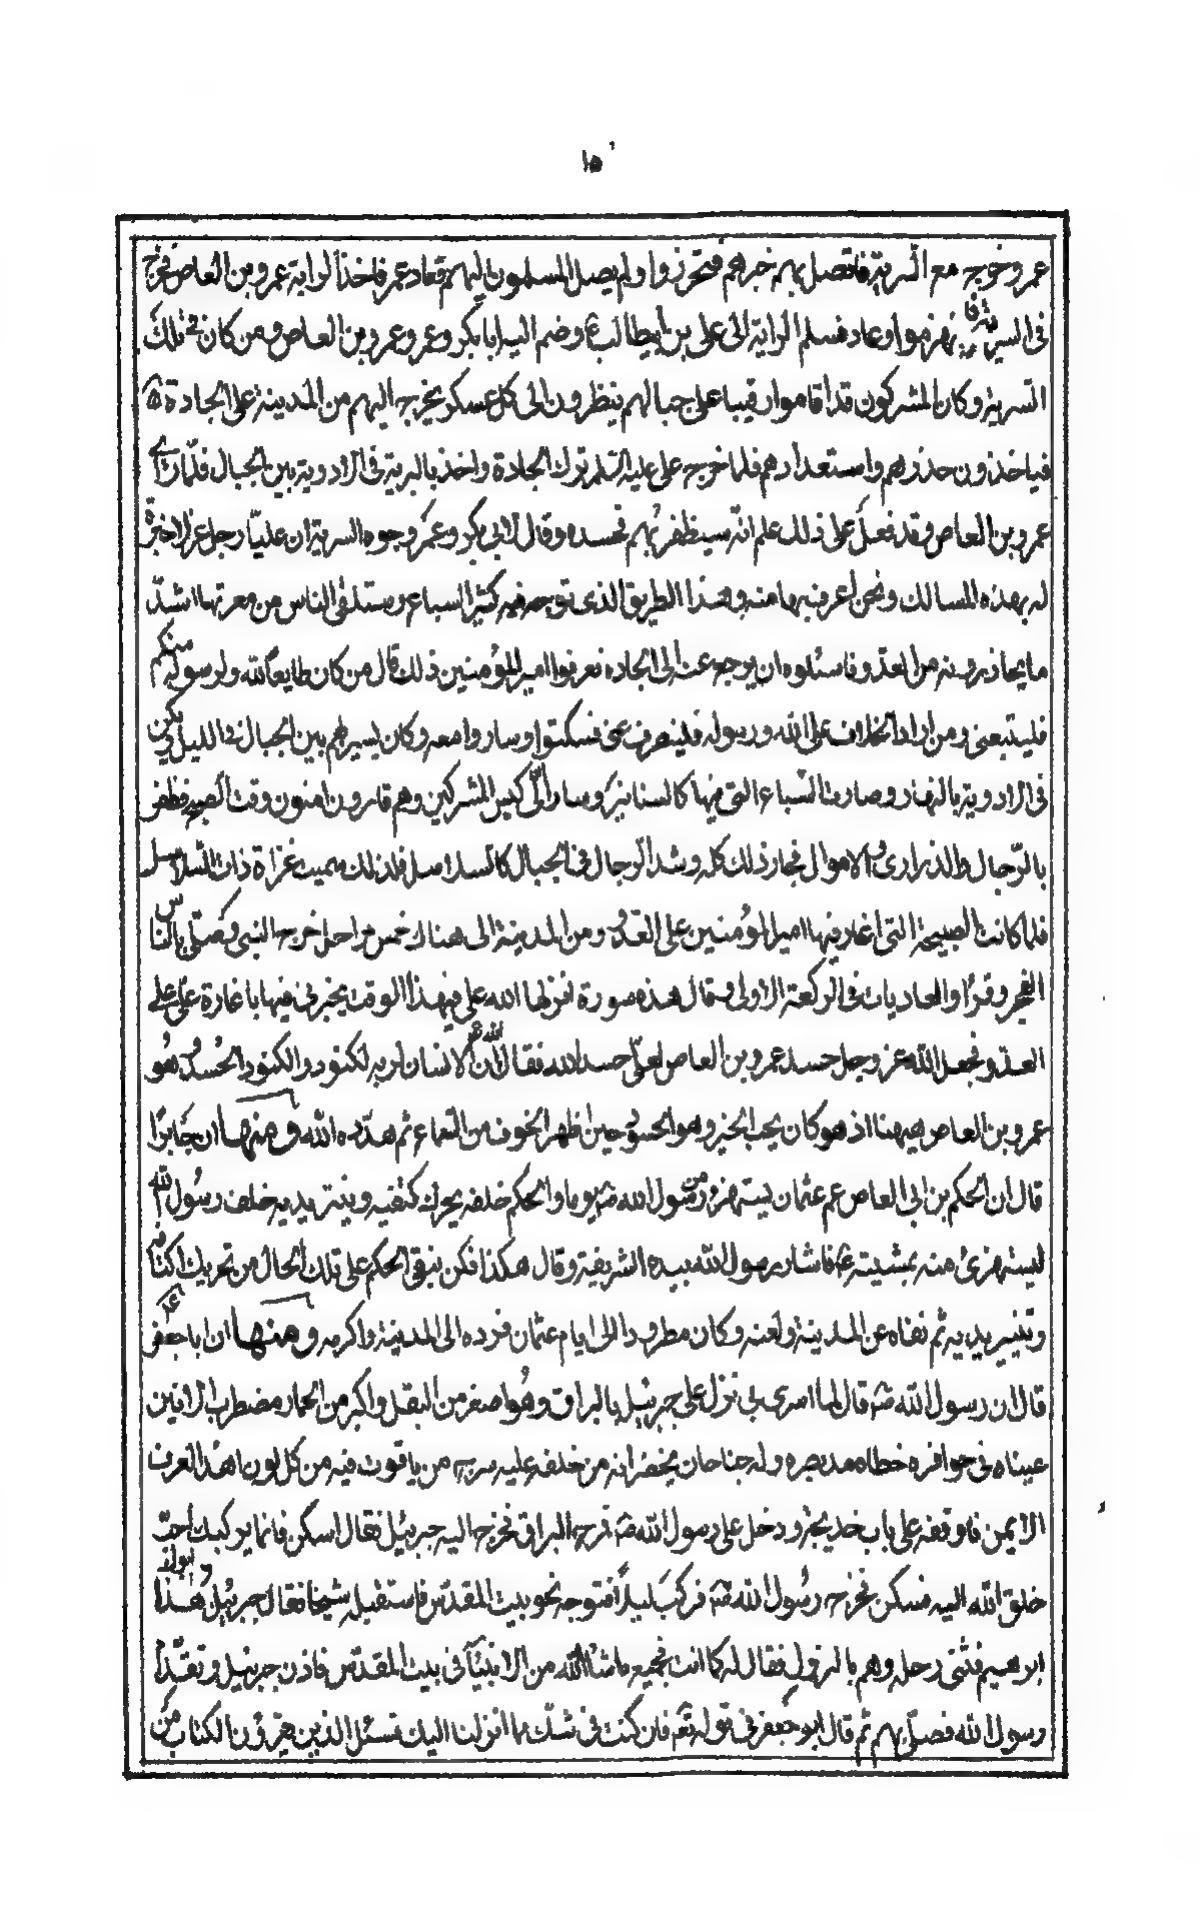 ١٥
عمر وخرج مع السرية فاتصل بهم خبرهم فتحرزوا ولم يصل المسلمون اليهم فعاد عمر فاخذ الراية عمرو بن العاص فخرج
فى السرية فانهزموا وعاد فسلم الراية الى على بن ابيطالب ع وضم اليه ابابكر وعمر وعمرو بن العاص ومن كان فى تلك
السرية وكان المشركون قد اقاموا رقيبا على جبالهم ينظرون الى كل عسكر يخرج اليهم من المدينة على الجادة
فياخذون حذرهم واستعدادهم فلما خرج على عليه السلم ترك الجادة واخذ بالسرية فى الاودية بين الجبال فلما راى
عمرو بن العاص وقد فعل على ذلك علم انه سيظفر بهم فحسده وقال لابى بكر وعمر ووجوه السرية ان عليا رجل غر لا خبرة
له بهذه المسالك ونحن اعرف بها منه وهذا الطريق الذى توجه فيه كثير السباع وستلقى الناس من معرتها اشد
ما يحاذرونه من العدو فاسئلوه ان يرجع عنه الى الجاده فعرفوا امير المؤمنين ذلك قال من كان طايعا لله ولرسوله منكم
فليتبعنى ومن اراد الخلاف على الله ورسوله فلينصرف عنى فسكتوا وساروا معه وكان يسير بهم بين الجبال فى الليل ويكمن
فى الاودية بالنهار وصارت السباع التى فيها كالسنانير وسار الى ان كبس المشركين وهم قارون امنون وقت الصبح فظفر
بالرجال والذرارى والاموال فحاز ذلك كله وشد الرجال فى الحبال كالسلاسل فلذلك سميت غزاة ذات السلاسل
فلما كانت الصبيحة التى اغار فيها امير المؤمنين على العدو ومن المدينة الى هناك خمس مراحل خرج النبى وصلى بالناس
الفجر وقرا والعاديات فى الركعة الاولى وقال هذه سورة انزلها الله على فى هذا الوقت يخبرنى فيها باغارة على على
العدو وجعل الله عز وجل حسد عمرو بن العاص لعلى حسدا لله فقال ان الانسان لربه لكنود والكنود الحسود وهو
عمرو بن العاص هيهنا اذ هو كان يحب الخير وهو الحسود حين اظهر الخوف من السباع ثم هدده الله ومنها ان جابرا
قال ان الحكم بن ابى العاص عم عثمان يستهزؤ من رسول الله ص يوما والحكم خلفه يحرك كتفيه وينتر يديه خلف رسول الله
ليستهزئ منه بمشيته ع فاشار رسول الله بيده الشريفة وقال هكذا فكن فبقى الحكم على تلك الحال من تحريك اكتافه
وتنيير يديه ثم نفاه عن المدينة ولعنه وكان مطرودا الى ايام عثمان فرده الى المدينة واكرمه ومنها ان ابا جعفر ع
قال ان رسول الله ص قال لما اسرى بى نزل على جبرئيل بالبراق وهو اصغر من البغل واكبر من الحمار مضطرب الاذنين
عيناه فى حوافره خطاه مد بصره وله جناحان يحفزانه من خلفه عليه سرج من ياقوت فيه من كل لون اهدب العرف
الايمن فاوقفه على باب خديجة ودخل على رسول الله ص فمرح البراق فخرج اليه جبرئيل فقال اسكن فانما يركبك احب
خلق الله اليه فسكن فخرج رسول الله ص فركب ليلا فتوجه نحو بيت المقدس فاستقبل شيخا فقال جبرئيل هذا ابوك
ابراهيم فثنى رجله وهم بالنزول فقال له كما انت فجمع ما شاء الله من الانبياء فى بيت المقدس فاذن جبرئيل وتقدم
رسول الله فصلى بهم ثم قال ابو جعفر فى قوله تعم فان كنت فى شك مما انزلنا اليك فسئل الذين يقرؤن الكتاب من